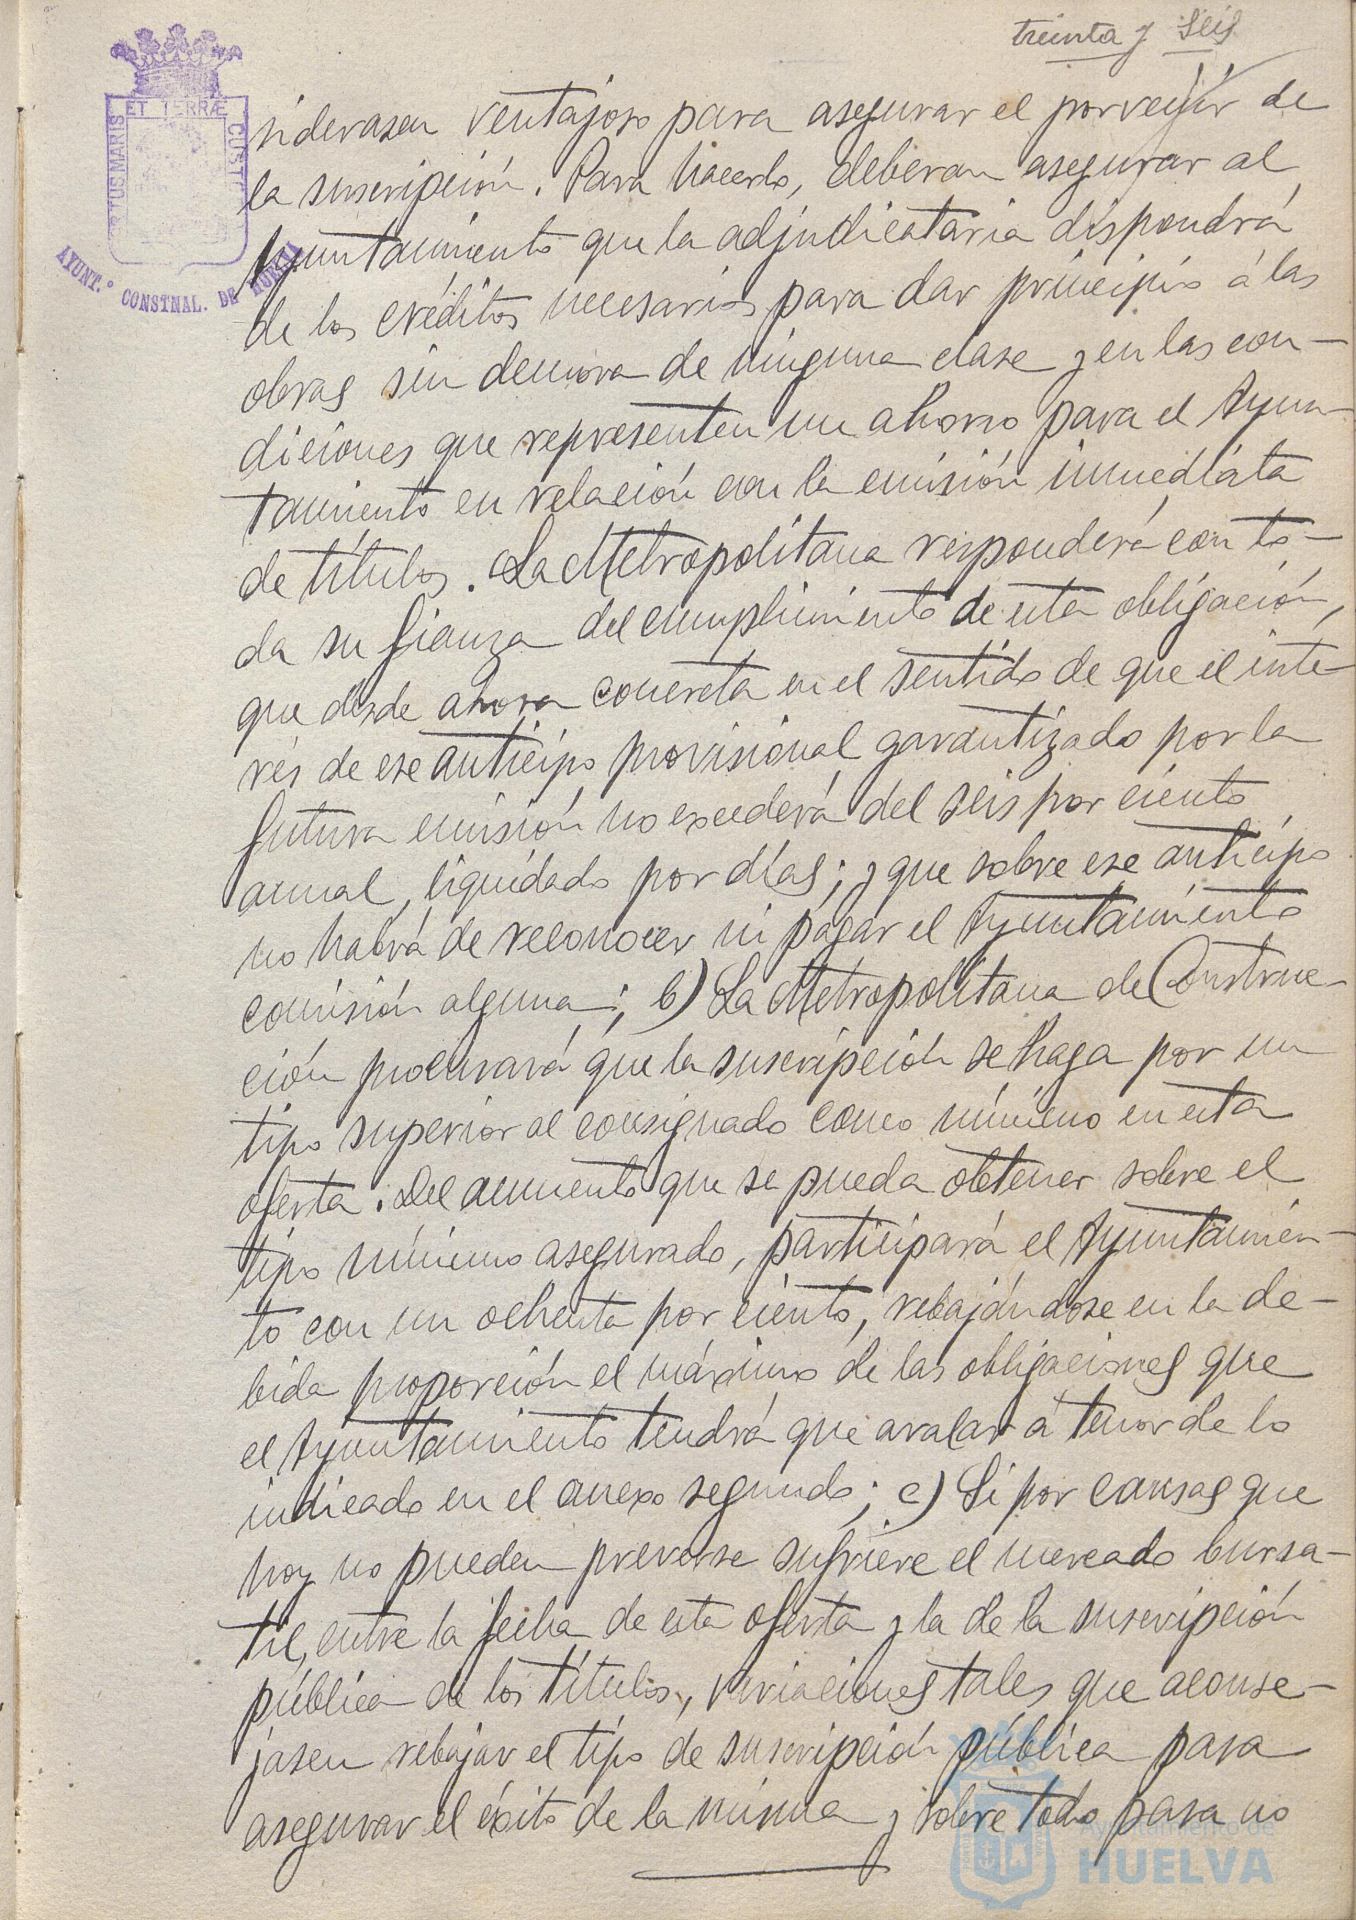 treinta y seis
ET TERRÆ
PORTUS MARIS
CUSTODIA
AYUNT.º CONSTNAL. DE HUELVA
siderasen ventajoso para asegurar el porvenir de
la suscripción. Para hacerlo, deberan asegurar al
Ayuntamiento que la adjudicataria dispondrá
de los créditos necesarios para dar principio á las
obras sin demora de ninguna clase y en las con-
diciones que representen un ahorro para el Ayun-
tamiento en relación con la emisión inmediata
de títulos. La Metropolitana responderá con to-
da su fianza del cumplimiento de esta obligación,
que desde ahora concreta en el sentido de que el inte
rés de ese anticipo provisional garantizado por la
futura emisión no excederá del seis por ciento
anual, liquidado por días; y que sobre ese anticipo
no habrá de reconocer ni pagar el Ayuntamiento
comisión alguna; b) La Metropolitana de Construc-
ción procurará que la suscripción se haga por un
tipo superior al consignado como mínimo en esta
oferta. Del aumento que se pueda obtener sobre el
tipo mínimo asegurado, participará el Ayuntamien-
to con un ochenta por ciento, rebajándose en la de-
bida proporción el máximo de las obligaciones que
el Ayuntamiento tendrá que avalar á tenor de lo
indicado en el anexo segundo; c) Si por causas que
hoy no pueden preverse sufriere el mercado bursa-
til, entre la fecha de esta oferta y la de la suscripción
pública de los títulos, variaciones tales que aconse-
jasen rebajar el tipo de suscripción pública para
asegurar el éxito de la misma y sobre todo para no
Ayuntamiento de
HUELVA